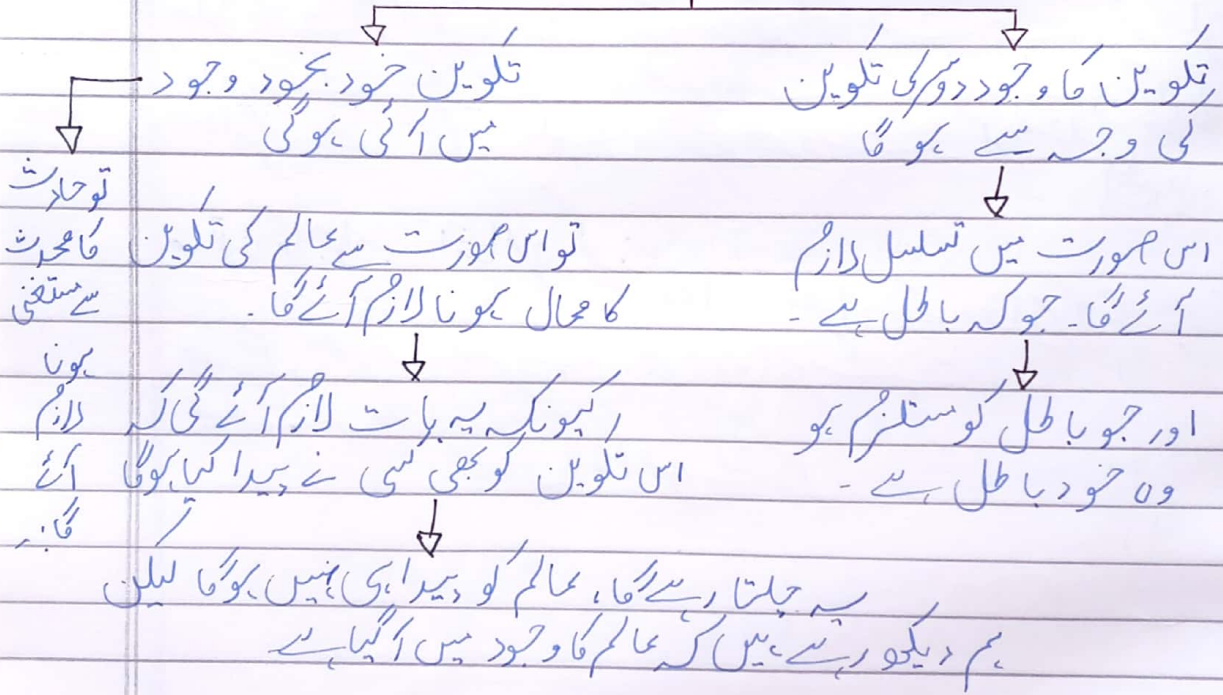 تکوین کا وجود دوسری تکوین
کی وجہ سے ہو گا
اس صورت میں تسلسل لازم
آئے گا۔ جو کہ باطل ہے۔
اور جو باطل کو مستلزم ہو
وہ خود باطل ہے۔
تکوین خود بخود وجود
میں آئی ہوگی
تو اس صورت سے عالم کی تکوین
کا محال ہونا لازم آئے گا۔
کیونکہ یہ بات لازم آئے گی کہ
اس تکوین کو بھی کسی نے پیدا کیا ہوگا
یہ چلتا رہے گا، عالم کو پیدا ہی نہیں ہوگا لیکن
ہم دیکھ رہے ہیں کہ عالم کا وجود میں آ گیا ہے
تو حادث
کا محدث
سے مستغنی
ہونا
لازم
آئے
گا